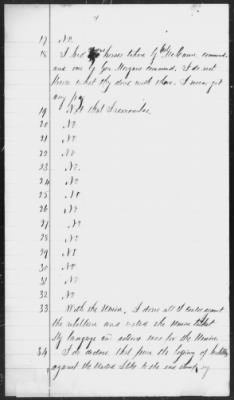 17 No
18 I had horses taken by Col McCann command
and one of Gen Morgans command. I do not
know what they done with them. I never got
any pay
19 Not that I remember
20 No
21 No
22 No
23 No.
24 No
25 No
26 No
27 No
28 No
29 No
30 No
31 No
32 No
33 With the Union, I done all I could against
the rebellion and voted the Union ticket
My language and actions was for the Union
34 I do declare that from the beginning of hostilities
against the United States to the end thereof my